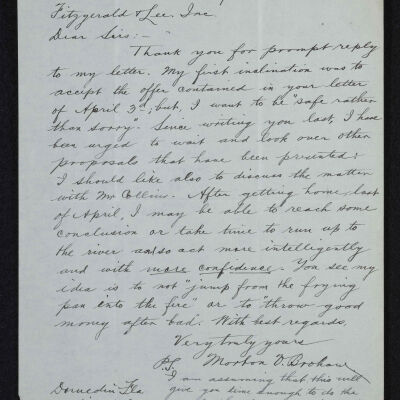 Fitzgerald & Lee, Inc.
Dear Sirs:-
Thank you for prompt reply
to my letter. My first inclination was to
accept the offer contained in your letter
of April 3rd; but, I want to be "safe rather
than sorry". Since writing you last, I have
been urged to wait and look over other
proposals that have been presented;
I should like also to discuss the matter
with Mr Collins. After getting home, last
of April, I may be able to reach some
conclusion or take time to run up to
the river and so act more intelligently
and with more confidence. You see my
idea is to not "jump from the frying
pan into the fire" or to "throw good
money after bad". With best regards,
Very truly yours
Morton V.
P.S. I am assuming that this will
Dunedin Fla give you time enough to do the